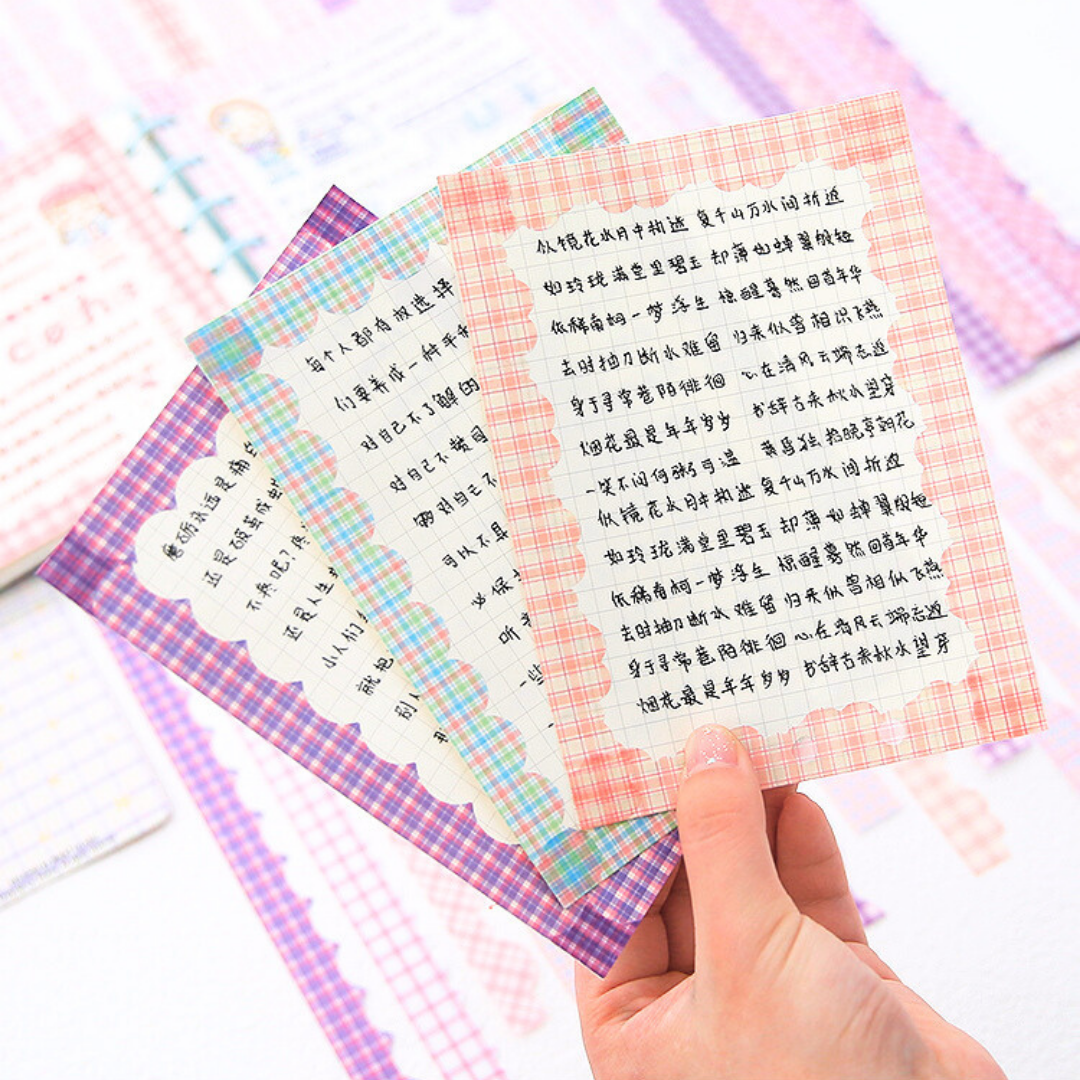 每个人都有权选择
们要养成一种平
对自己不了解的
对自己不赞同
够对自己不
可以不具
必保
听
一些
磨砺永远是痛
还是破茧成
不疼吧?
还是人生
小人们
就把
别人
似镜花水月中执迷 复千山万水间折返
如玲珑满堂里碧玉 却薄如蝉翼般短
依稀南柯一梦浮生 惊醒蓦然回首年华
去时抽刀断水难留 归来似曾相识飞燕
身于寻常巷陌徘徊 心在清风云端忘返
烟花最是年年岁岁 书辞古来秋水望穿
一笑不问何粥可温 黄马独拾晚亭朝花
似镜花水月中执迷 复千山万水间折返
如玲珑满堂里碧玉 却薄如蝉翼般短
依稀南柯一梦浮生 惊醒蓦然回首年华
去时抽刀断水难留 归来似曾相似飞燕
身于寻常巷陌徘徊 心在清风云端忘返
烟花最是年年岁岁 书辞古来秋水望穿